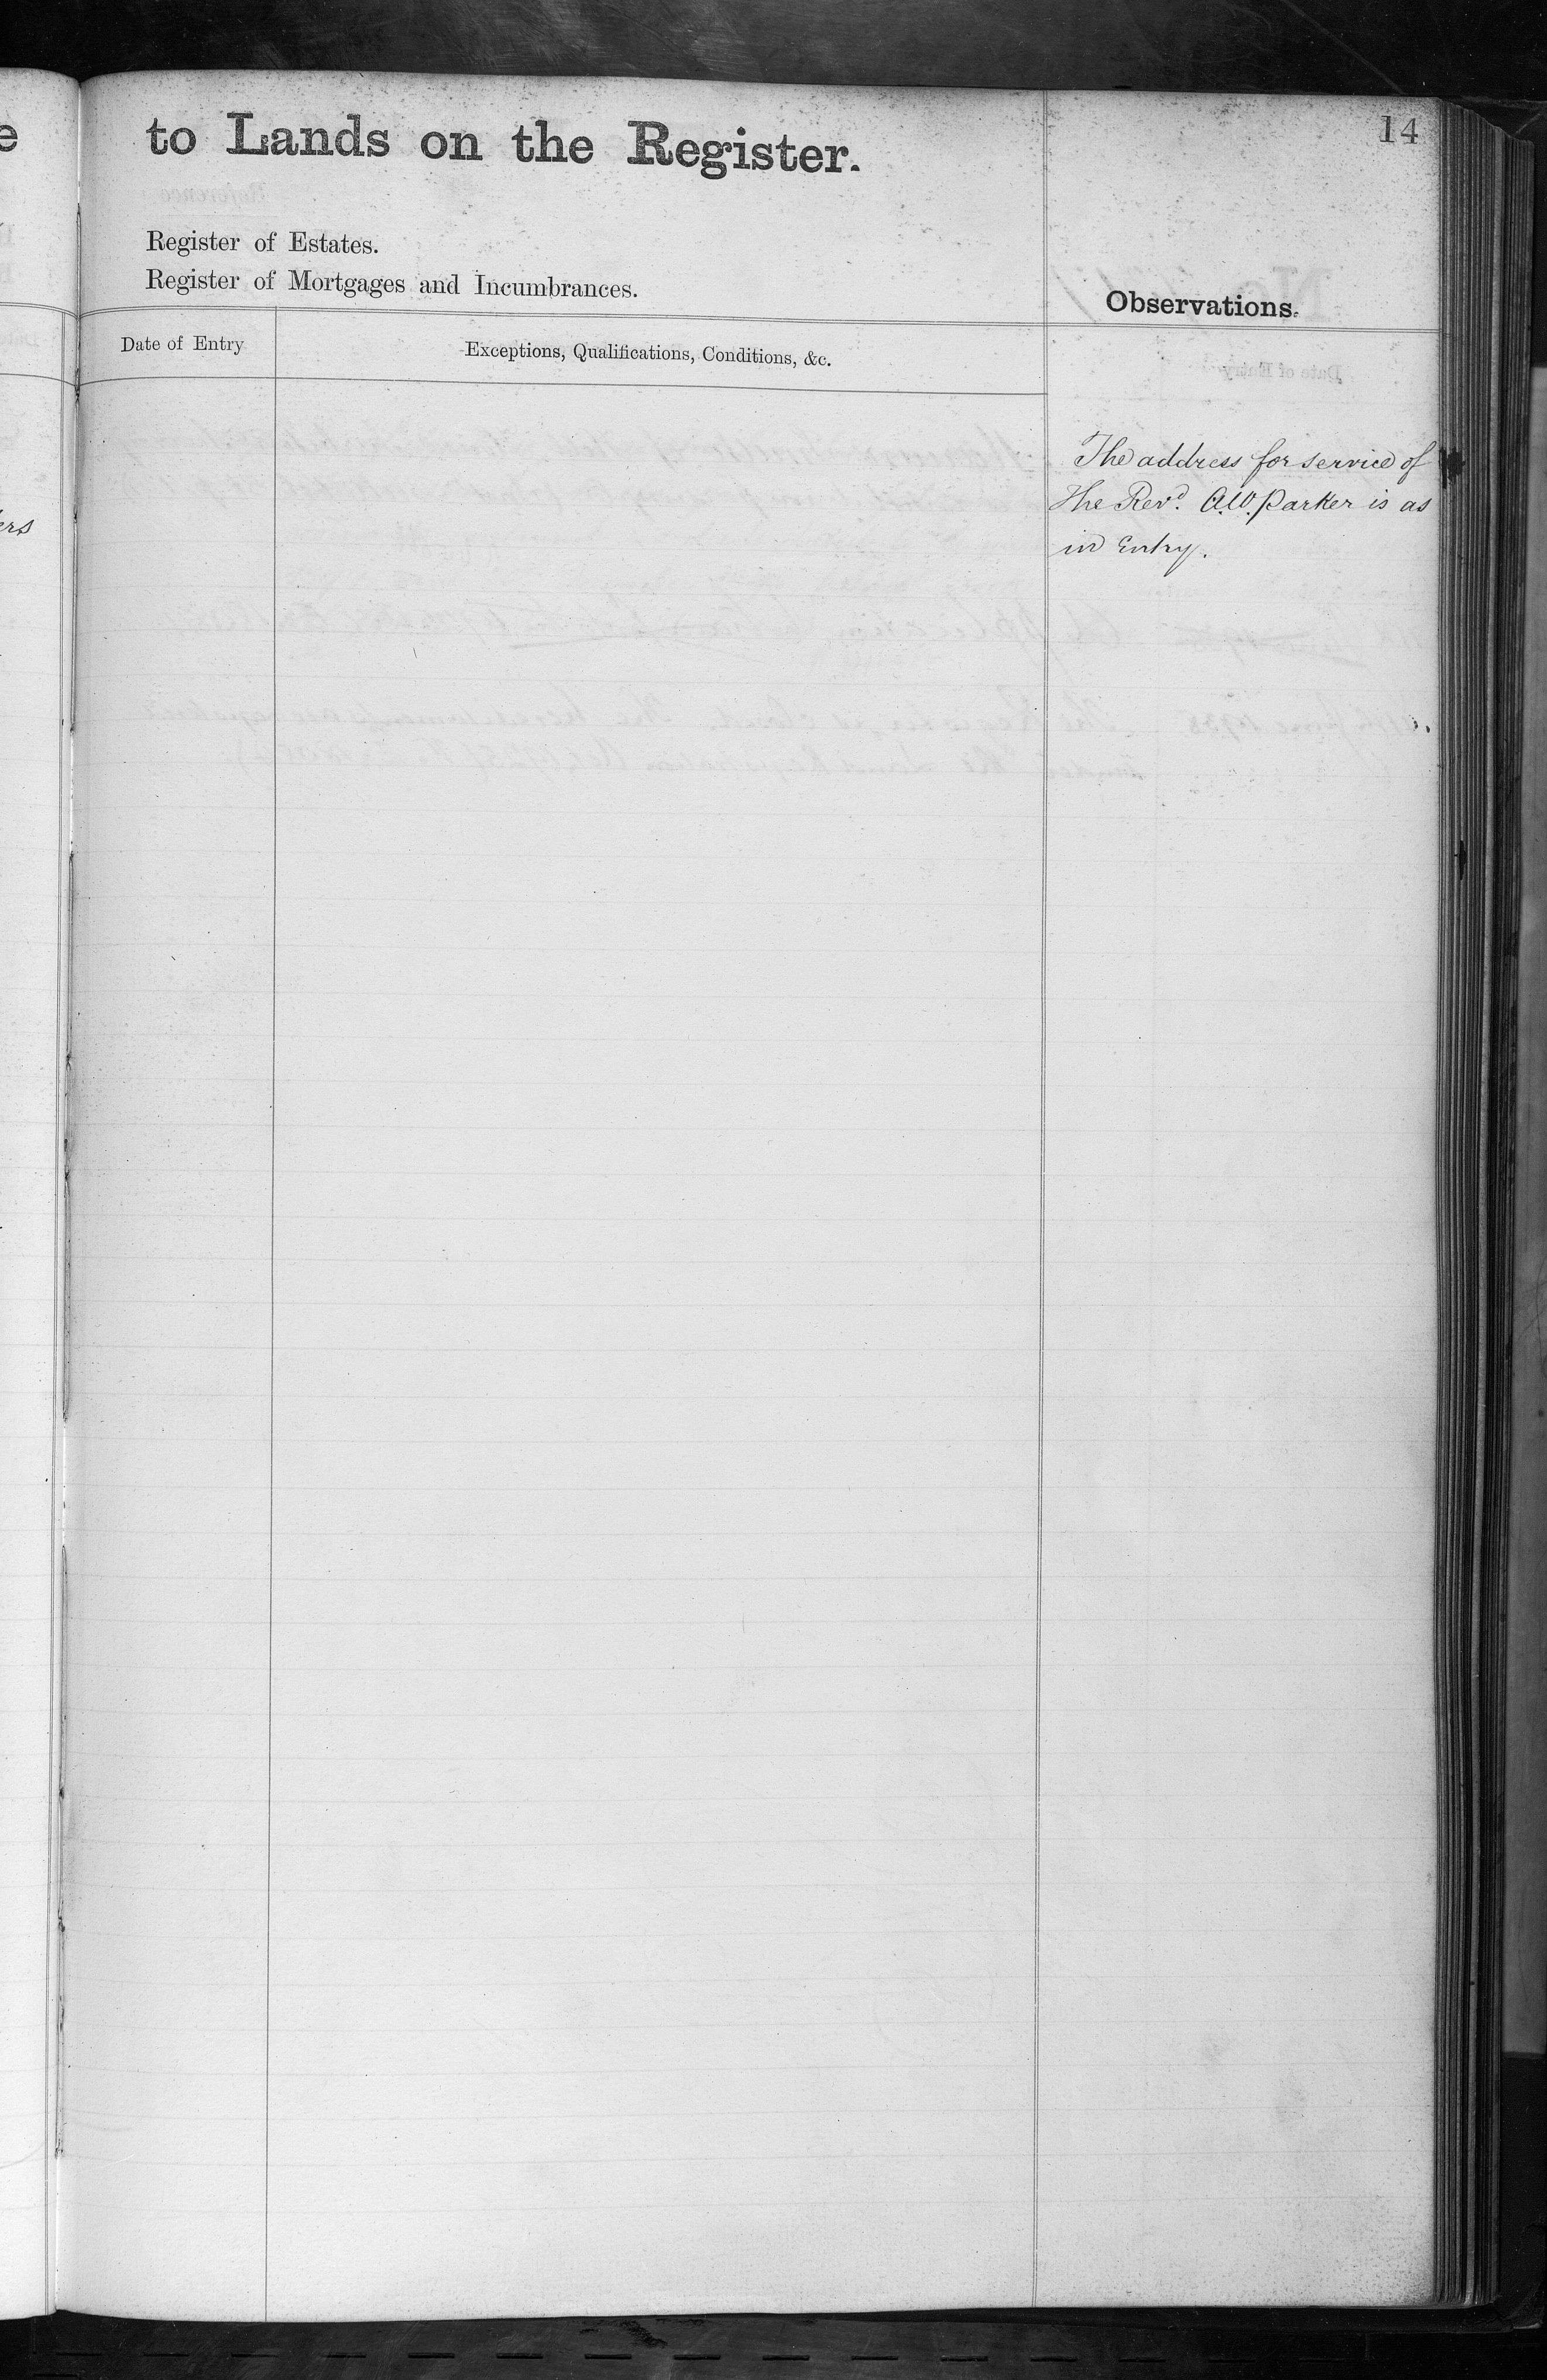 14
to Lands on the Register.
Register of Estates.
Register of Mortgages and Incumbrances.
Observations.
Date of Entry
Exceptions, Qualifications, Conditions, &c.
The address for service of
The Revd. A.W. Parker is as
in Entry.